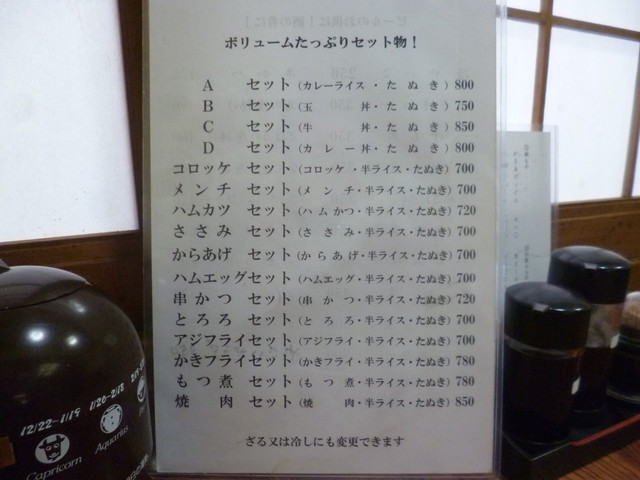 ボリュームたっぷりセット物！
A セット（カレーライス・たぬき）800
B セット（玉丼・たぬき）750
C セット（牛丼・たぬき）850
D セット（カレー丼・たぬき）800
コロッケ セット（コロッケ・半ライス・たぬき）700
メンチ セット（メンチ・半ライス・たぬき）700
ハムカツ セット（ハムかつ・半ライス・たぬき）720
ささみ セット（ささみ・半ライス・たぬき）700
からあげ セット（からあげ・半ライス・たぬき）700
ハムエッグセット（ハムエッグ・半ライス・たぬき）700
串かつ セット（串かつ・半ライス・たぬき）720
とろろ セット（とろろ・半ライス・たぬき）700
アジフライセット（アジフライ・半ライス・たぬき）700
かきフライセット（かきフライ・半ライス・たぬき）780
もつ煮 セット（もつ煮・半ライス・たぬき）780
焼肉 セット（焼肉・半ライス・たぬき）850
ざる又は冷しにも変更できます
12/22~1/19
Capricorn
1/20~2/18
Aquarius